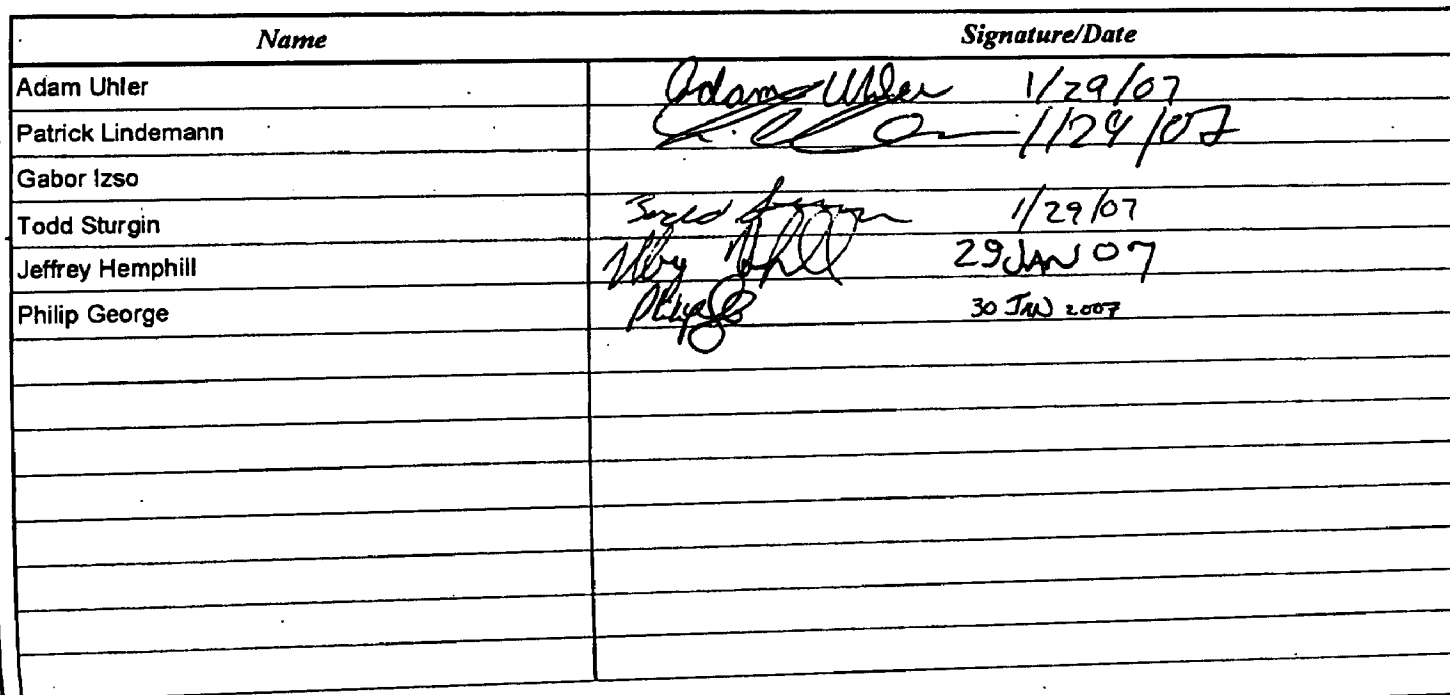 Name Signature/Date
Adam Uhler Adam Uhler 1/29/07
Patrick Lindemann 1/29/07
Gabor Izso
Todd Sturgin 1/29/07
Jeffrey Hemphill 29 JAN 07
Philip George 30 JAN 2007